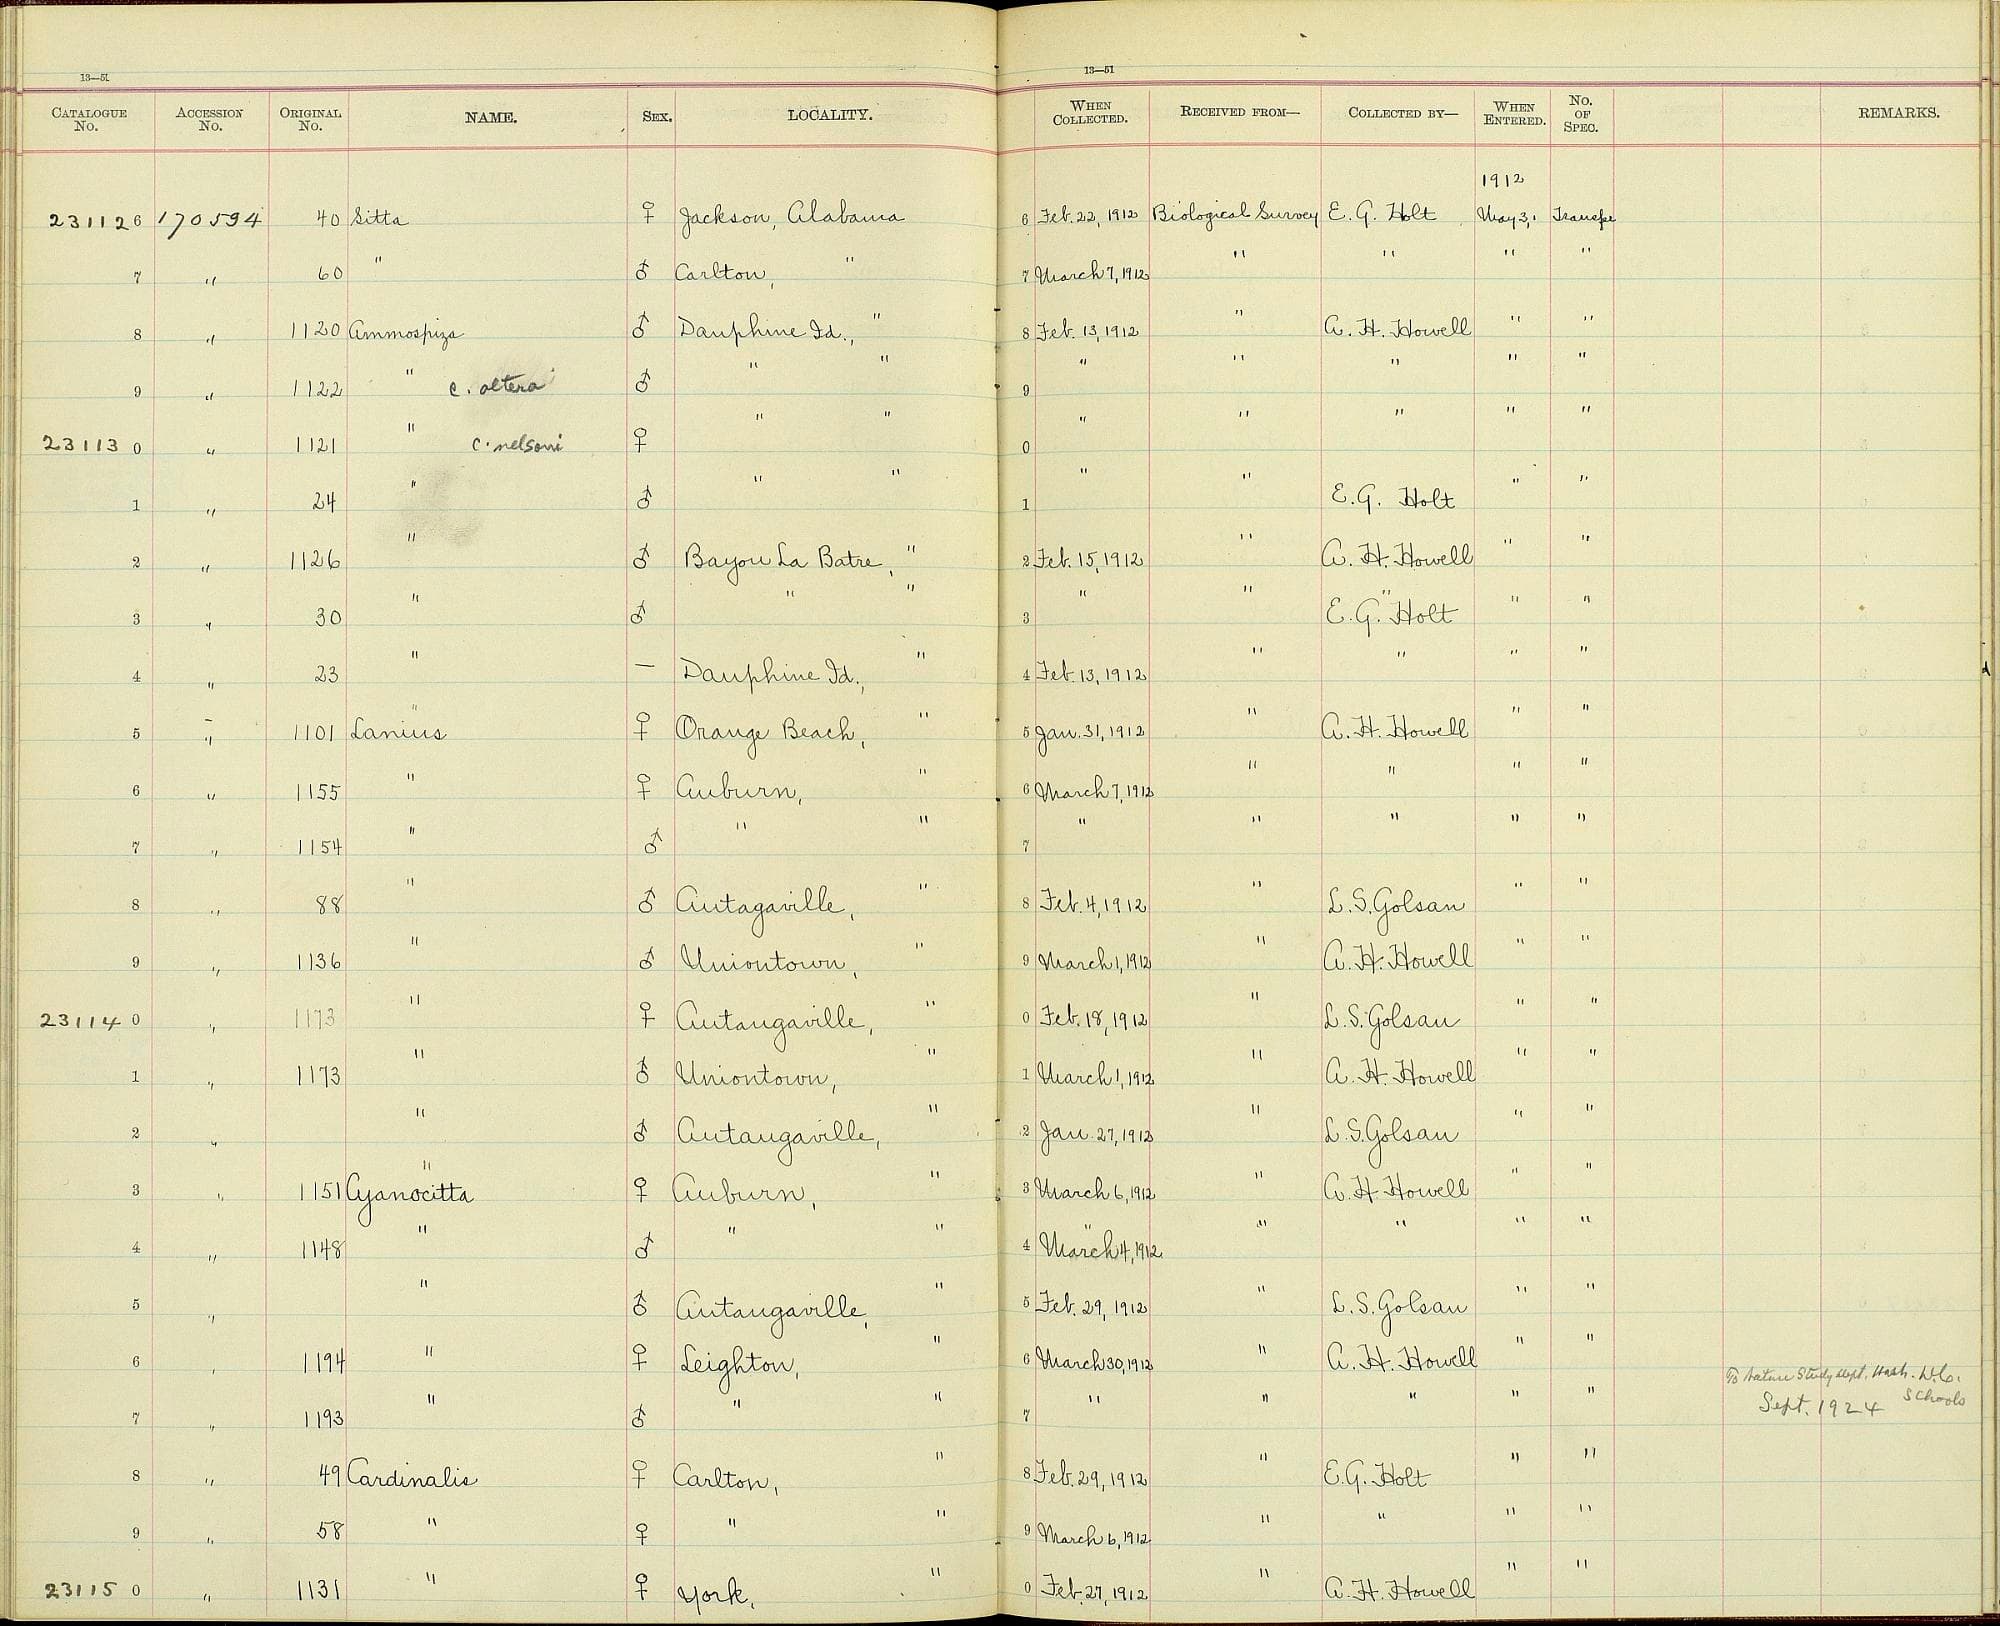 13—51 13—51
CATALOGUE No. ACCESSION No. ORIGINAL No. NAME. SEX. LOCALITY. WHEN COLLECTED. RECEIVED FROM— COLLECTED BY— WHEN ENTERED. No. OF SPEC. REMARKS.
1912
231126 170594 40 Sitta ♀ Jackson, Alabama 6 Feb. 22, 1912 Biological Survey E. G. Holt May 3, Transfe
7 " 60 " ♂ Carlton, " 7 March 7, 1912 " " " "
8 " 1120 Ammospiza ♂ Dauphine Id., " 8 Feb. 13, 1912 " A. H. Howell " "
9 " 1122 " c. altera ♂ " " 9 " " " " "
231130 " 1121 " c. nelsoni ♀ " " 0 " " " " "
1 " 24 " ♂ " " 1 " " E. G. Holt " "
2 " 1126 " ♂ Bayou La Batre, " 2 Feb. 15, 1912 " A. H. Howell " "
3 " 30 " ♂ " " 3 " " E. G. Holt " "
4 " 23 " — Dauphine Id., " 4 Feb. 13, 1912 " " " "
5 " 1101 Lanius ♀ Orange Beach, " 5 Jan. 31, 1912 " A. H. Howell " "
6 " 1155 " ♀ Auburn, " 6 March 7, 1912 " " " "
7 " 1154 " ♂ " " 7 " " " " "
8 " 88 " ♂ Autagaville, " 8 Feb. 4, 1912 " L. S. Golsan " "
9 " 1136 " ♂ Uniontown, " 9 March 1, 1912 " A. H. Howell " "
231140 " 1173 " ♀ Autaugaville, " 0 Feb. 18, 1912 " L. S. Golsan " "
1 " 1173 " ♂ Uniontown, " 1 March 1, 1912 " A. H. Howell " "
2 " " ♂ Autaugaville, " 2 Jan. 27, 1912 " L. S. Golsan " "
3 " 1151 Cyanocitta ♀ Auburn, " 3 March 6, 1912 " A. H. Howell " "
4 " 1148 " ♂ " " 4 March 4, 1912 " " " "
5 " " ♂ Autaugaville, " 5 Feb. 29, 1912 " L. S. Golsan " "
6 " 1194 " ♀ Leighton, " 6 March 30, 1912 " A. H. Howell " "
To Nature Study Dept. Wash. D.C. Schools
7 " 1193 " ♂ " " 7 " " " " " Sept. 1924
8 " 49 Cardinalis ♀ Carlton, " 8 Feb. 29, 1912 " E. G. Holt " "
9 " 58 " ♀ " " 9 March 6, 1912 " " " "
231150 " 1131 " ♀ York, " 0 Feb. 27, 1912 " A. H. Howell " "